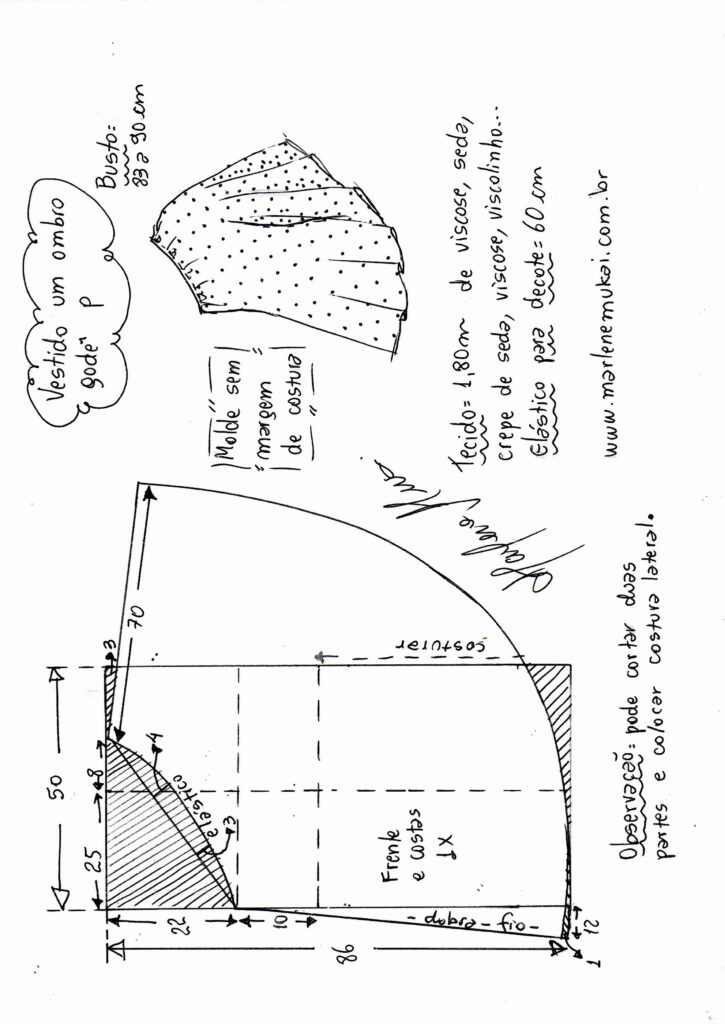 Vestido um ombro
godê" P
Busto:
83 a 90 cm
Molde sem
margem
de costura
Tecido = 1,80 m de viscose, seda,
crepe de seda, viscose, viscolinho...
Elástico para decote = 60 cm
www.marlenemukai.com.br
Marlene Mukai
50
25
8
3
70
22
10
86
4
elástico
3
costurar
Frente
e costas
1X
- fio - dobra -
12
1
Observação = pode cortar duas
partes e colocar costura lateral.